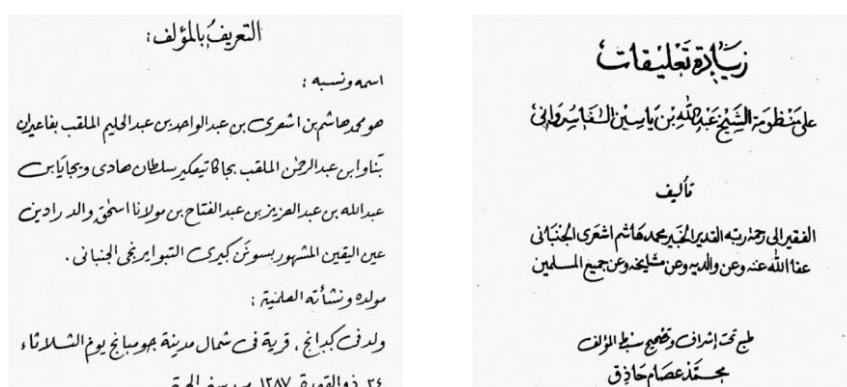 زيَادة تعليقات
على منظومة الشيخ عبد الله بن ياسين الفاسرواني
تأليف
الفقير الى رحمة ربه القدير الخبير محمد هاشم اشعرى الجنبانى
عفا الله عنه وعن والديه وعن مشايخه وعن جميع المسلمين
طبع تحت إشراف وتصحيح سبط المؤلف
محمد عصام حاذق
التعريف بالمؤلف:
اسمه ونسبه :
هو محمد هاشم بن اشعرى بن عبد الواحد بن عبد الحليم الملقب بفاعيران
بناوا بن عبد الرحمن الملقب بجاكا تيعكير سلطان هادى ويجايا بن
عبد الله بن عبد العزيز بن عبد الفتاح بن مولانا اسحق والد رادين
عين اليقين المشهور بسونن كيرى التبوايرنجى الجنبانى .
مولده ونشأته العلمية :
ولد فى كبرانج ، قرية فى شمال مدينة جومبانج يوم الثلاثاء
٢٤ ذو القعدة ١٢٨٧ من